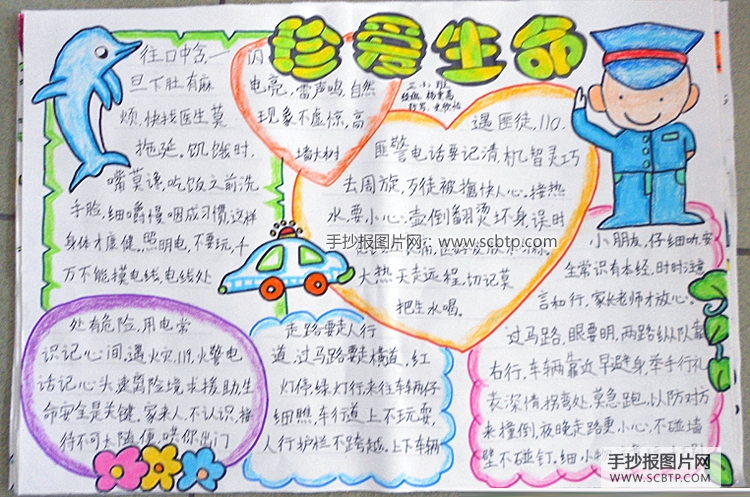 珍爱生命
往口中含,一
旦下肚有麻
烦,快找医生莫
拖延。饥饿时,
嘴莫馋,吃饭之前洗
手脸,细嚼慢咽成习惯,这样
身体才康健,照明电,不要玩,千
万不能摸电线,电线处
闪
电亮,雷声鸣,自然
现象不虚惊,高
墙大树
遇匪徒,110,
匪警电话要记清,机智灵巧
去周旋,万徒被擒快人心。接热
水要小心,壶倒翻烫坏身,误时
大热天走远程,切记莫
把生水喝。
手抄报图片网:www.scbtp.com
小朋友,仔细听,安
全常识有本经,时时注意
言和行,家长老师才放心。
处处有危险,用电常
识记心间,遇火灾,119,火警电
话记心头,速离险境求援助,生
命安全是关键。家来人,不认识,接
待不可太随便,哄你出门
走路要走人行
道,过马路要走横道,红
灯停绿灯行,来往车辆仔
细瞧,车行道上不玩耍,
人行护栏不跨越。上下车辆
过马路,眼要明,两路纵队靠
右行,车辆靠近早避身,举手行礼
表深情,拐弯处,莫急跑,以防对方
来撞倒,夜晚走路更小心,不碰墙
壁不碰钉。细小
手抄报图片网
WWW.SCBTP.COM